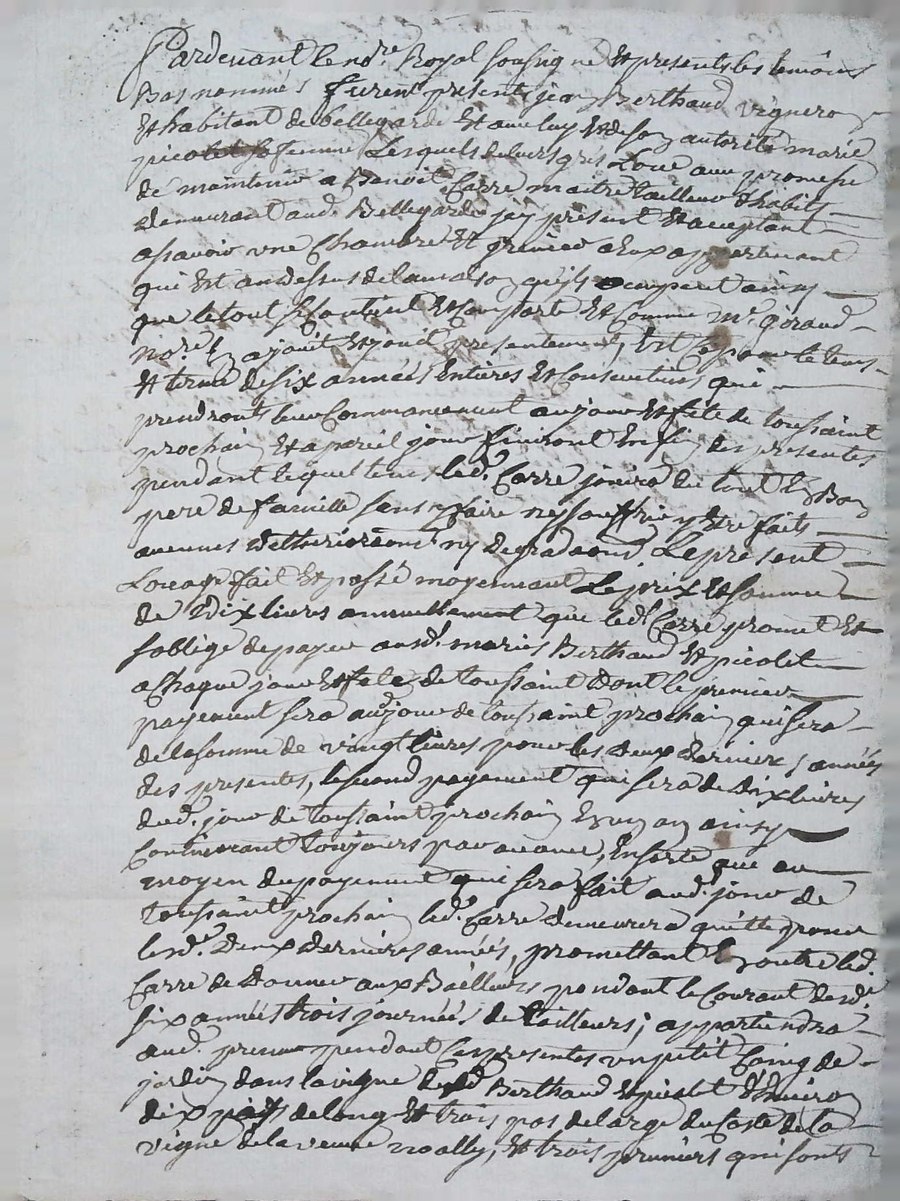 Pardevant le nore Royal soussigné et presents les temoins
Bas nommés furent présent jean Berthaud vigneron
et habitant de bellegarde et avec luy et de son autorité marie
picolet sa femme Lesquels de leurs grés Loue avec promesse
de maintenir a Benoit Carre maitre tailleur d'habits
demeurant aud. Bellegarde jcy présent et acceptant
assavoir une Chambre et grenier a Eux appartenant
qui est au dessus de la maison qu'ils occupent ainsy
que le tout se Contient et Comporte et Comme mr. giraud
nore En a jouit et jouit presentement, Et Ce pour le tems
et terme de six années Entieres et Consecutives qui
prendront leur Commancement au jour et fête de toussaint
prochain et a pareil jour finiront En fin des presentes
pendant lequel tems led. Carre jouira du tout En Bon
pere de famille sans y faire ny souffrir y être faits
aucunes detteriorāons ny degradāons Le présent
Louage fait et passé moyennant Le prix et somme
de Dix livres annuellement que led. Carre promet et
s'oblige de payer ausd. mariés Berthaud et picolet
a Chaque jour et fete de toussaint Dont le premier
payement sera aud. jour de toussaint prochain qui sera
de la somme de vingt livres pour les deux dernieres années
des presentes, le second payement qui sera de dix livres
dud. jour de toussaint prochain En un an ainsy
Continuant toujours par avance, En sorte que au
moyen du payement qui sera fait aud. jour de
toussaint prochain led. Carre demeurera quitte pour
lesd. Deux dernieres années, promettant En outre led.
Carre de Donner aux Bailleurs pendant le Courant desd.
six années trois journées de tailleurs; appartiendra
aud. preneur pendant Ces presentes un petit Coing de
jardin dans la vigne desd. Berthaud et picolet d'Environ
dix pas de long et trois pas de large du Coste de la
vigne de la veuve noally, et trois pruniers qui sont